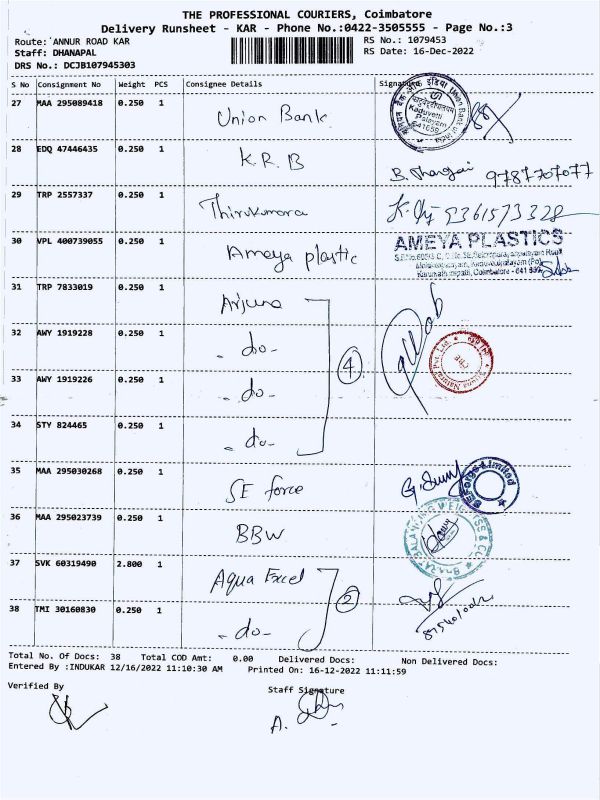 THE PROFESSIONAL COURIERS, Coimbatore
Delivery Runsheet - KAR - Phone No.:0422-3505555 - Page No.:3
Route: ANNUR ROAD KAR RS No.: 1079453
Staff: DHANAPAL RS Date: 16-Dec-2022
DRS No.: DCJB107945303
S No Consignment No Weight PCS Consignee Details Signature
27 MAA 295089418 0.250 1 Union Bank
28 EDQ 47446435 0.250 1 K.R.B 9787707077
29 TRP 2557337 0.250 1 Thirukumara 9361573328
30 VPL 400739055 0.250 1 Ameya plastic AMEYA PLASTICS
31 TRP 7833019 0.250 1 Arjuna
32 AWY 1919228 0.250 1 - do -
4
33 AWY 1919226 0.250 1 - do -
34 STY 824465 0.250 1 - do -
35 MAA 295030268 0.250 1 SE force
36 MAA 295023739 0.250 1 BBW
37 SVK 60319490 2.800 1 Aqua Excel
2
38 TMI 30160830 0.250 1 - do -
Total No. Of Docs: 38 Total COD Amt: 0.00 Delivered Docs: Non Delivered Docs:
Entered By :INDUKAR 12/16/2022 11:10:30 AM Printed On: 16-12-2022 11:11:59
Verified By Staff Signature